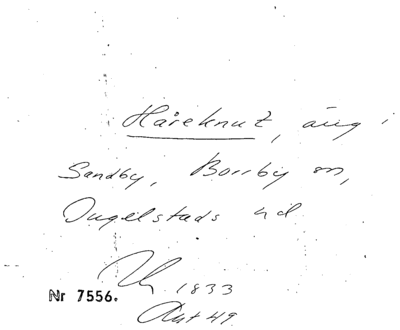 Håreknut, äng i
Sandby, Borrby sn,
Ingelstads hd
1833
Nr 7556.
Akt 49